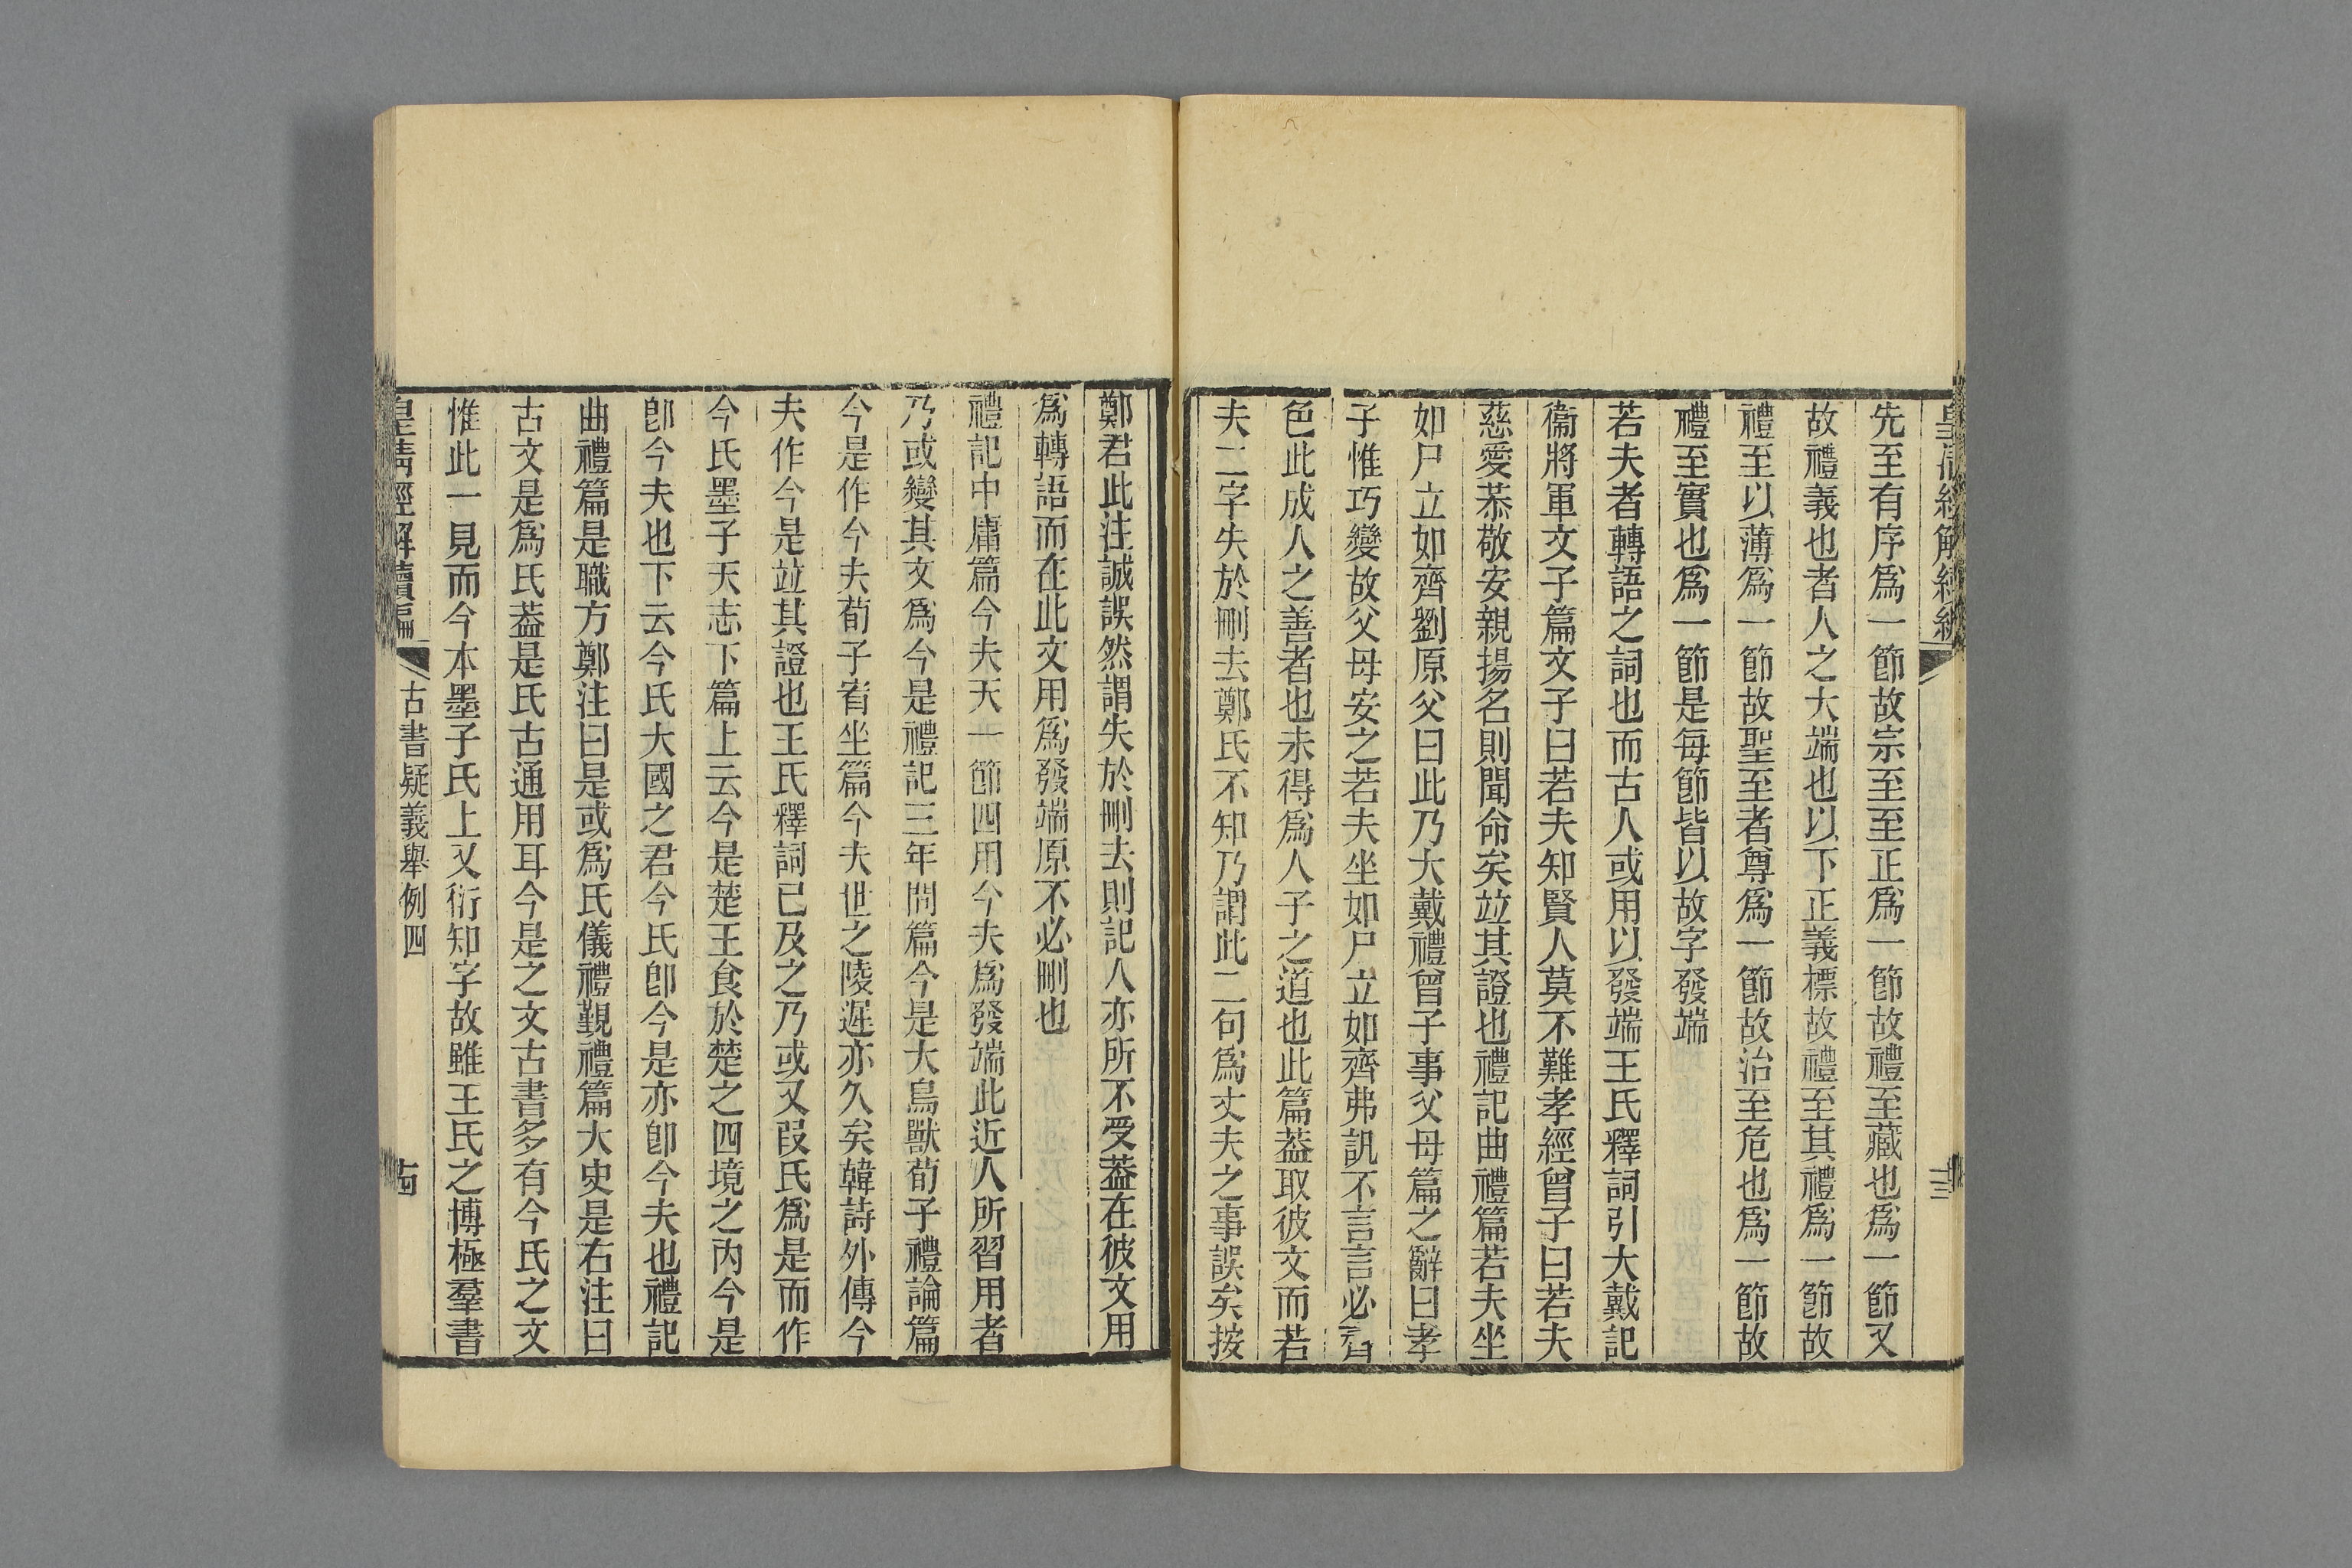 皇清經解續編
十三
先至有序爲一節故宗至至正爲一節故禮至藏也爲一節又
故禮義也者人之大端也以下正義標故禮至其禮爲一節故
禮至以薄爲一節故聖至者尊爲一節故治至危也爲一節故
禮至實也爲一節是每節皆以故字發端
若夫者轉語之詞也而古人或用以發端王氏釋詞引大戴記
衞將軍文子篇文子曰若夫知賢人莫不難孝經曾子曰若夫
慈愛恭敬安親揚名則聞命矣竝其證也禮記曲禮篇若夫坐
如尸立如齊劉原父曰此乃大戴禮曾子事父母篇之辭曰孝
子惟巧變故父母安之若夫坐如尸立如齊弗訊不言言必齊
色此成人之善者也未得爲人子之道也此篇葢取彼文而若
夫二字失於刪去鄭氏不知乃謂此二句爲丈夫之事誤矣按
鄭君此注誠誤然謂失於刪去則記人亦所不受葢在彼文用
爲轉語而在此文用爲發端原不必刪也
禮記中庸篇今夫天一節四用今夫爲發端此近人所習用者
乃或變其文爲今是禮記三年問篇今是大鳥獸荀子禮論篇
今是作今夫荀子宥坐篇今夫世之陵遲亦久矣韓詩外傳今
夫作今是竝其證也王氏釋詞已及之乃或又叚氏爲是而作
今氏墨子天志下篇上云今是楚王食於楚之四境之內今是
卽今夫也下云今氏大國之君今氏卽今是亦卽今夫也禮記
曲禮篇是職方鄭注曰是或爲氏儀禮覲禮篇大史是右注曰
古文是爲氏葢是氏古通用耳今是之文古書多有今氏之文
惟此一見而今本墨子氏上又衍知字故雖王氏之博極羣書
皇清經解續編
古書疑義舉例四
十四